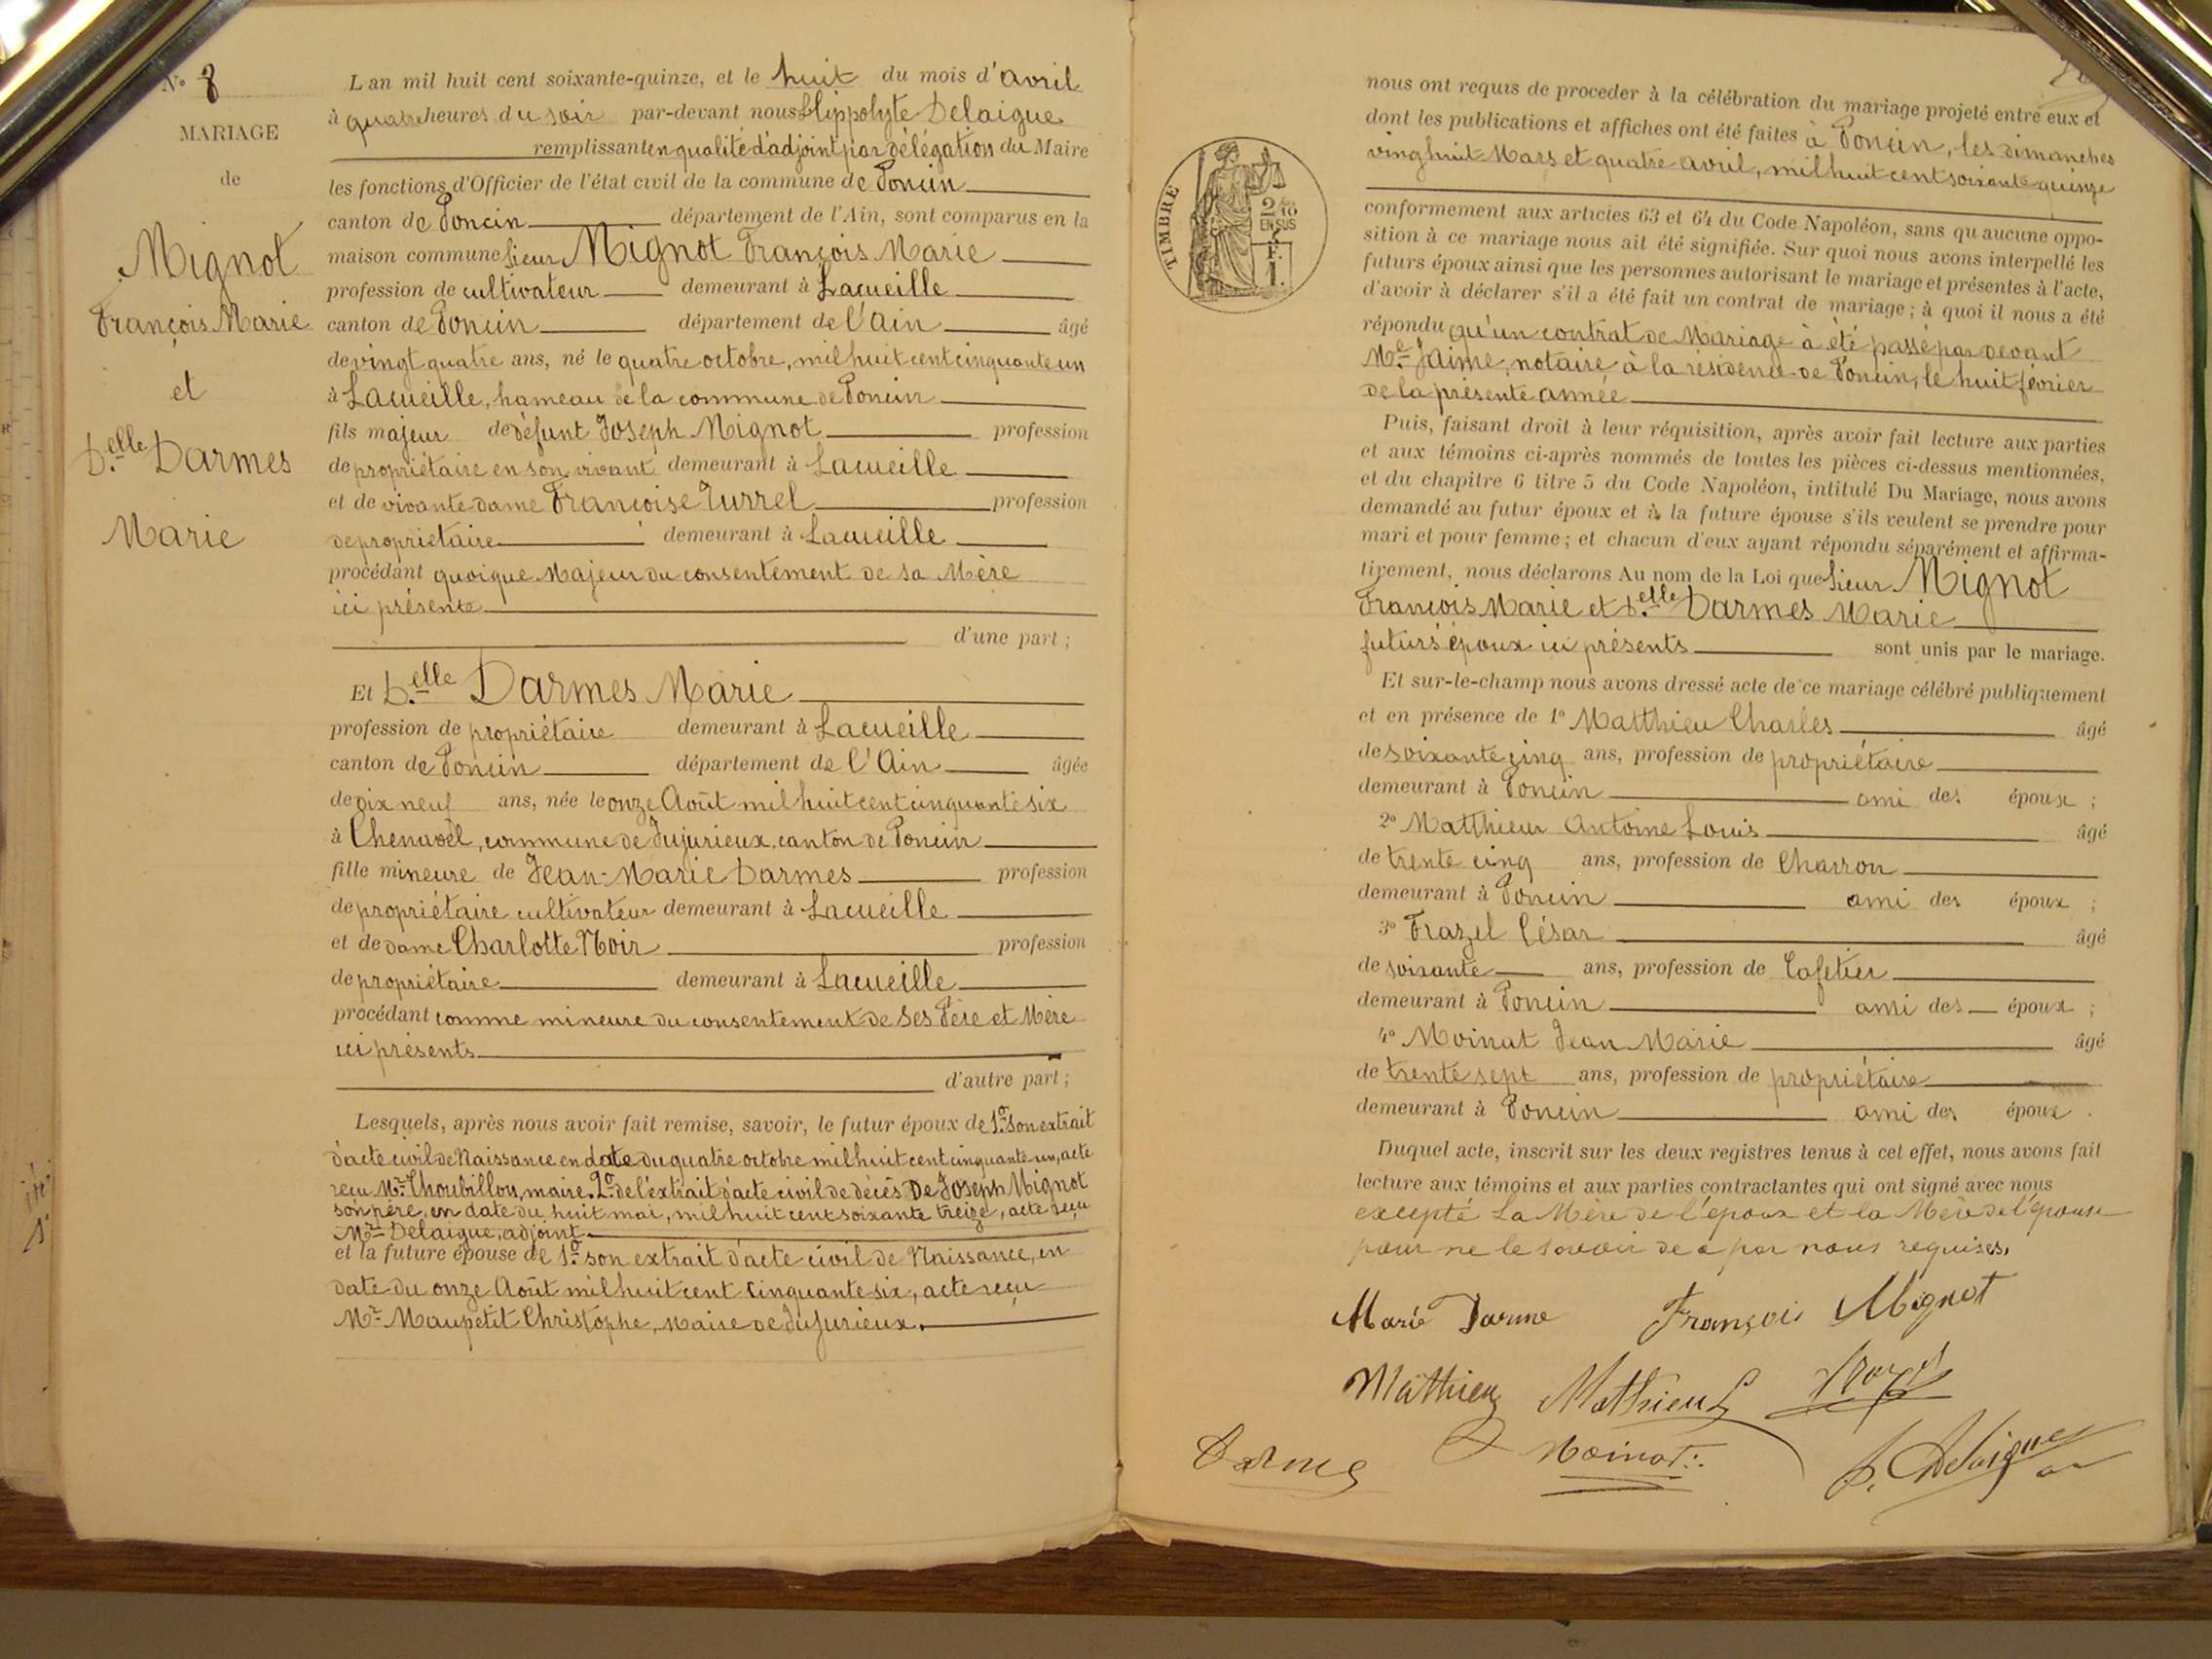 N° 8
MARIAGE
de
Mignot
François Marie
et
D.elle Darmes
Marie
L'an mil huit cent soixante-quinze, et le huit du mois d'avril
à quatre heures du soir par-devant nous Hippolyte Delaigue
remplissant en qualité d'adjoint par délégation du Maire
les fonctions d'Officier de l'état civil de la commune de Poncin
canton de Poncin département de l'Ain, sont comparus en la
maison commune Sieur Mignot François Marie
profession de cultivateur demeurant à Lacueille
canton de Poncin département de l'Ain âgé
de vingt quatre ans, né le quatre octobre, mil huit cent cinquante un
à Lacueille, hameau de la commune de Poncin
fils majeur de défunt Joseph Mignot profession
de propriétaire en son vivant demeurant à Lacueille
et de vivante dame Françoise Turrel profession
de propriétaire demeurant à Lacueille
procédant quoique Majeur du consentement de sa Mère
ici présente
d'une part ;
Et D.elle Darmes Marie
profession de propriétaire demeurant à Lacueille
canton de Poncin département de l'Ain âgée
de dix neuf ans, née le onze Août mil huit cent cinquante six
à Chenavel, commune de Jujurieux, canton de Poncin
fille mineure de Jean-Marie Darmes profession
de propriétaire cultivateur demeurant à Lacueille
et de dame Charlotte Noir profession
de propriétaire demeurant à Lacueille
procédant comme mineure du consentement de ses Père et Mère
ici présents
d'autre part ;
Lesquels, après nous avoir fait remise, savoir, le futur époux de 1° son extrait
d'acte civil de Naissance en date du quatre octobre mil huit cent cinquante un, acte
reçu Mr Choubillon, maire. 2° de l'extrait d'acte civil de décès De Joseph Mignot
son père, en date du huit mai, mil huit cent soixante treize, acte reçu
Mr Delaigue, adjoint
et la future épouse de 1° son extrait d'acte civil de Naissance, en
date du onze Août mil huit cent cinquante six, acte reçu
Mr Maupetit Christophe, Maire de Jujurieux.
TIMBRE
2/10
EN SUS
F.
1.
nous ont requis de procéder à la célébration du mariage projeté entre eux et
dont les publications et affiches ont été faites à Poncin, les dimanches
vingt huit Mars et quatre avril, mil huit cent soixante quinze
conformément aux articles 63 et 64 du Code Napoléon, sans qu'aucune oppo-
sition à ce mariage nous ait été signifiée. Sur quoi nous avons interpellé les
futurs époux ainsi que les personnes autorisant le mariage et présentes à l'acte,
d'avoir à déclarer s'il a été fait un contrat de mariage ; à quoi il nous a été
répondu qu'un contrat de Mariage à été passé par devant
Me Jaime, notaire à la résidence de Poncin, le huit février
de la présente année
Puis, faisant droit à leur réquisition, après avoir fait lecture aux parties
et aux témoins ci-après nommés de toutes les pièces ci-dessus mentionnées,
et du chapitre 6 titre 5 du Code Napoléon, intitulé Du Mariage, nous avons
demandé au futur époux et à la future épouse s'ils veulent se prendre pour
mari et pour femme ; et chacun d'eux ayant répondu séparément et affirma-
tivement, nous déclarons Au nom de la Loi que Sieur Mignot
François Marie et D.elle Darmes Marie
futurs époux ici présents sont unis par le mariage.
Et sur-le-champ nous avons dressé acte de ce mariage célébré publiquement
et en présence de 1° Matthieu Charles âgé
de soixante cinq ans, profession de propriétaire
demeurant à Poncin ami des époux ;
2° Matthieu Antoine Louis âgé
de trente cinq ans, profession de Charron
demeurant à Poncin ami des époux ;
3° Frazel César âgé
de soixante ans, profession de Cafetier
demeurant à Poncin ami des époux ;
4° Moinat Jean Marie âgé
de trente sept ans, profession de propriétaire
demeurant à Poncin ami des époux .
Duquel acte, inscrit sur les deux registres tenus à cet effet, nous avons fait
lecture aux témoins et aux parties contractantes qui ont signé avec nous
excepté La Mère de l'époux et la Mère de l'épouse
pour ne le savoir de ce par nous requises.
Marie Darme François Mignot
Mathieu Mathieu L
Darmes Moinat H. Delaigue